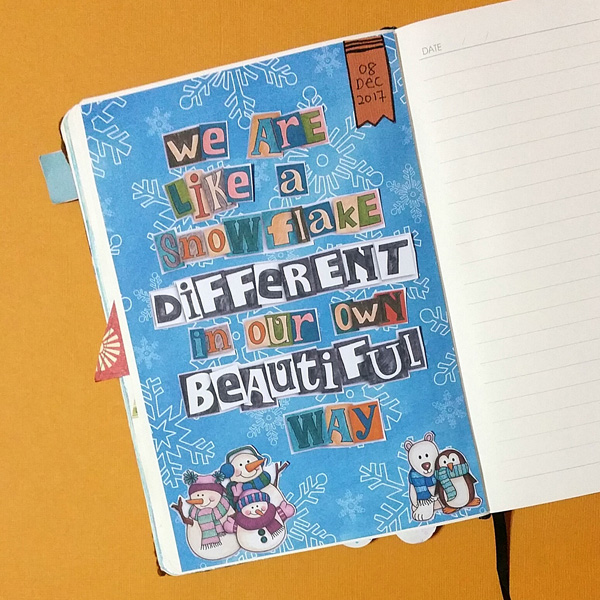 08
Dec
2017
We ARe
Like a
SnoWflakE
DiFFeRENT
in ouR oWN
BeAutiFUl
WAy
DATE